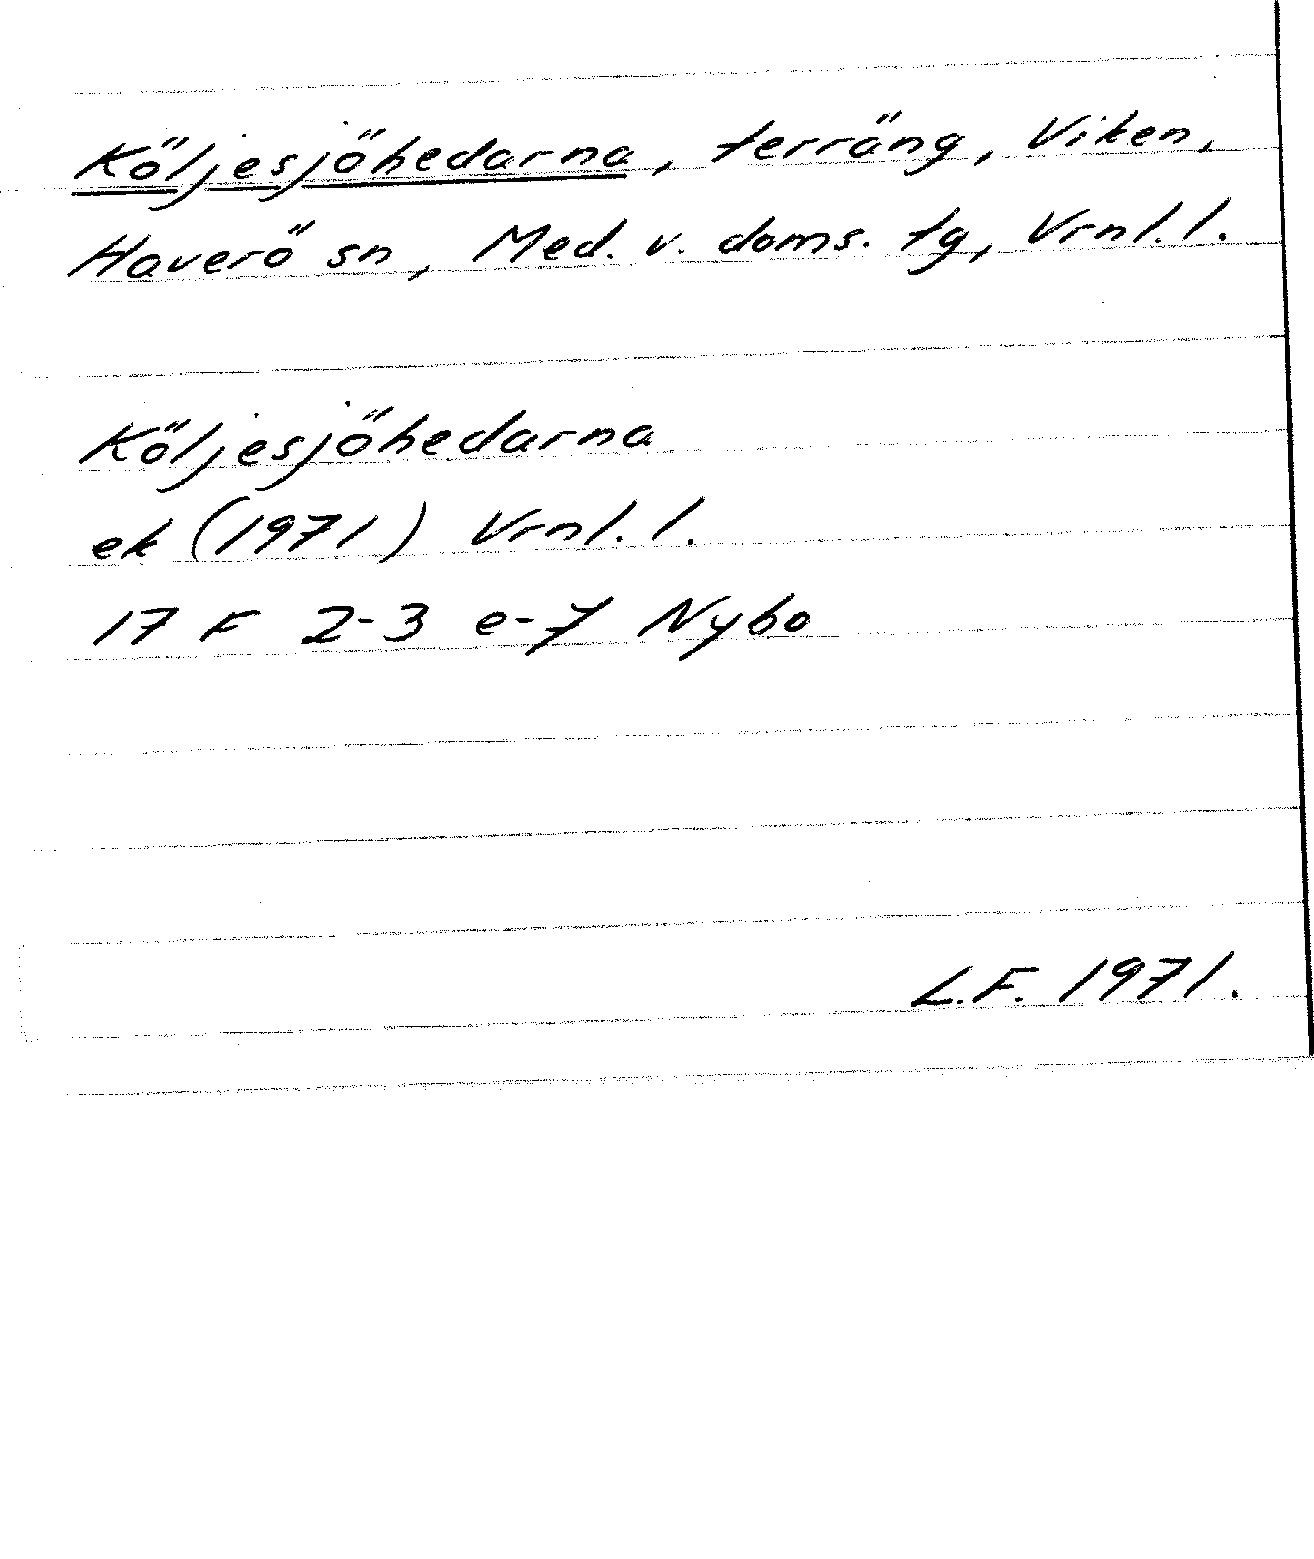 Köljesjöhedarna, terräng, Viken,
Haverö sn, Med. v. doms. tg, Vrnl. l.
Köljesjöhedarna
ek (1971) Vrnl. l.
17 F 2-3 e-f Nybo
L.F. 1971.